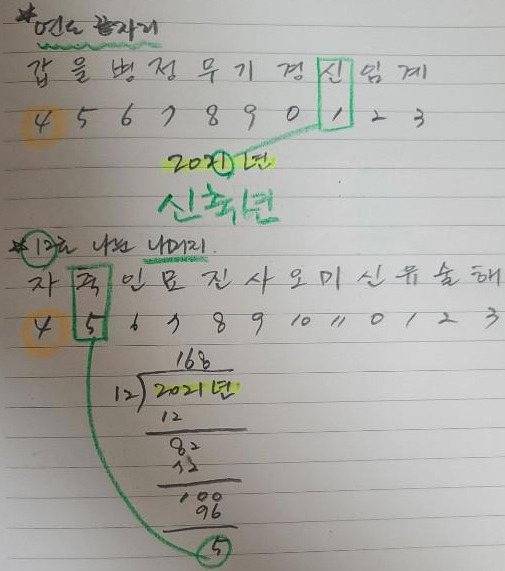 *연도 끝자리
갑 을 병 정 무 기 경 신 임 계
4 5 6 7 8 9 0 1 2 3
2021년
신축년
*12로 나눈 나머지.
자 축 인 묘 진 사 오 미 신 유 술 해
4 5 6 7 8 9 10 11 0 1 2 3
168
12)2021년
12
82
72
100
96
5